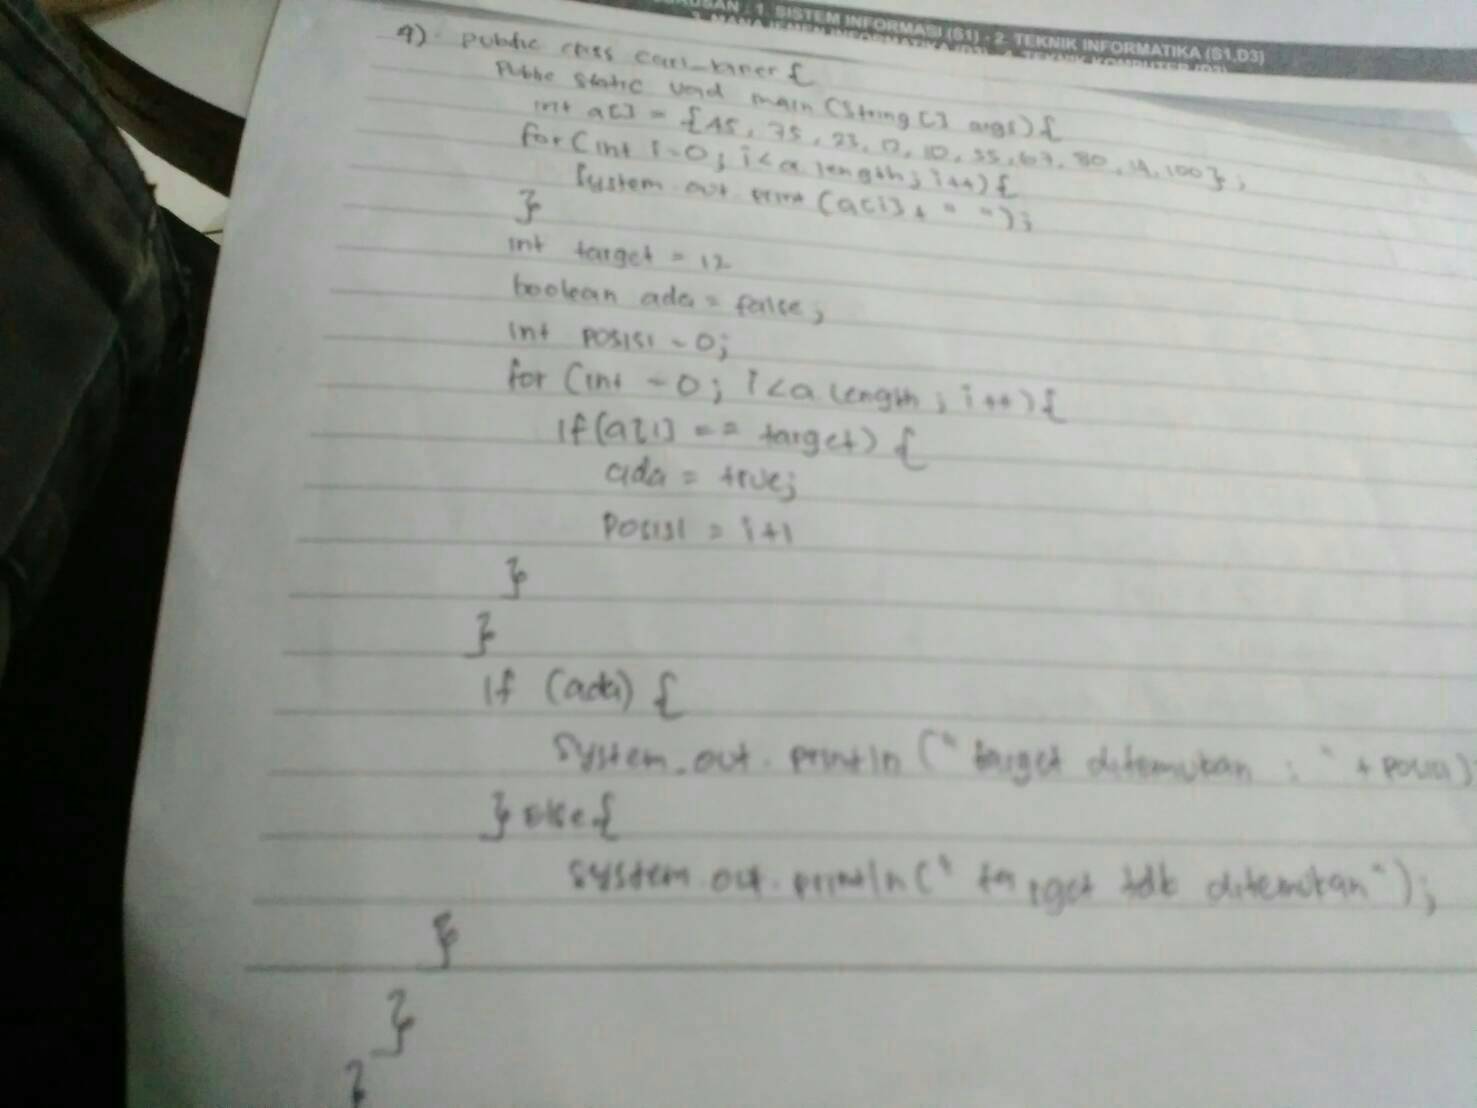 1. SISTEM INFORMASI (S1) - 2. TEKNIK INFORMATIKA (S1,D3)
public class cari_linier {
public static void main (String [] args) {
int a[] = {45, 75, 23, 12, 10, 55, 67, 80, 14, 100};
for (int i = 0; i < a length; i++) {
System. out. print (a[i] + " ");
}
int target = 12
boolean ada = false;
int posisi = 0;
for (int = 0; i < a length; i++) {
if (a[i] == target) {
ada = true;
posisi = i+1
}
}
if (ada) {
System. out. println (" target ditemukan : " + posisi)
} else {
system. out. println (" target tdk ditemukan ");
}
}
}